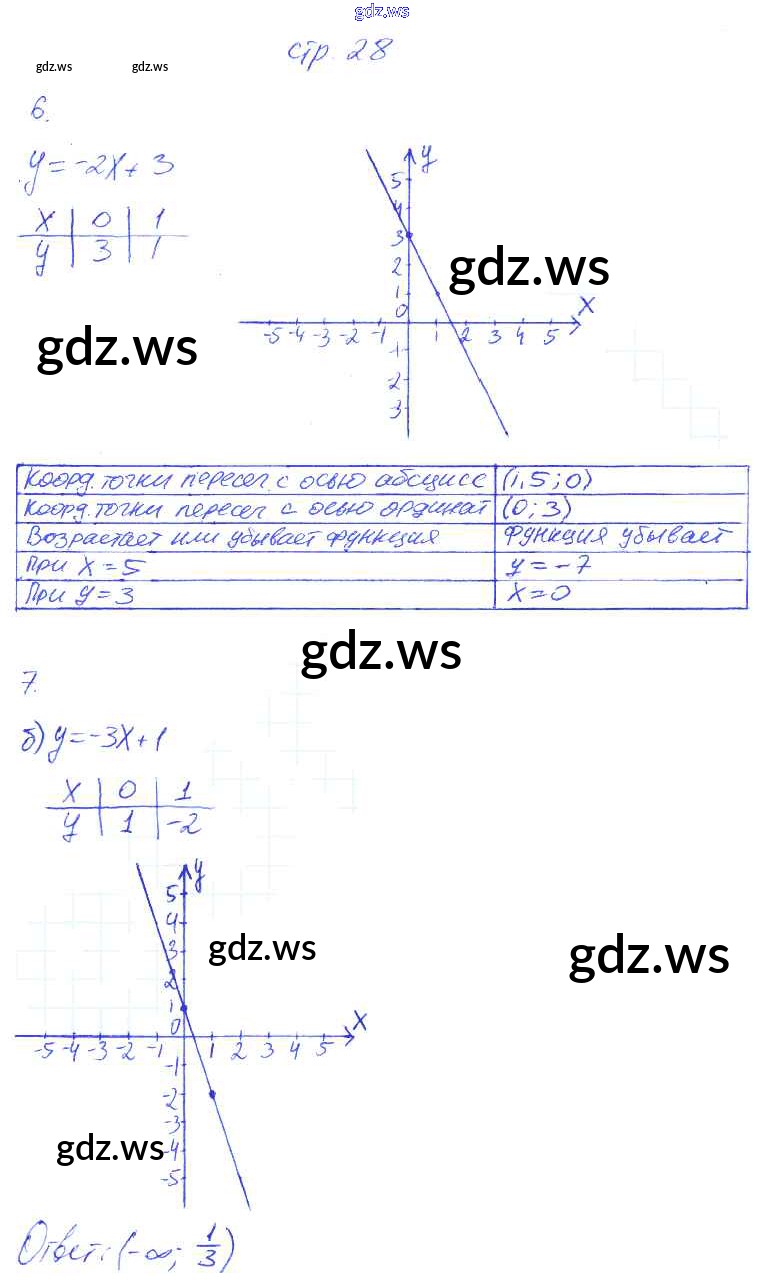 gdz.ws
стр. 28
gdz.ws gdz.ws
6.
y = -2x + 3
x | 0 | 1
y | 3 | 1
y
5
4
3
2
1
0
x
-5 -4 -3 -2 -1 1 2 3 4 5
-1
-2
-3
gdz.ws
gdz.ws
Коорд. точки пересеч. с осью абсцисс | (1,5; 0)
Коорд. точки пересеч с осью ординат | (0; 3)
Возрастает или убывает функция | Функция убывает
При x = 5 | y = -7
При y = 3 | x = 0
gdz.ws
7.
б) y = -3x + 1
x | 0 | 1
y | 1 | -2
y
5
4
3
2
1
0
x
-5 -4 -3 -2 -1 1 2 3 4 5
-1
-2
-3
-4
-5
gdz.ws
gdz.ws
gdz.ws
Ответ: (-∞; 1/3)